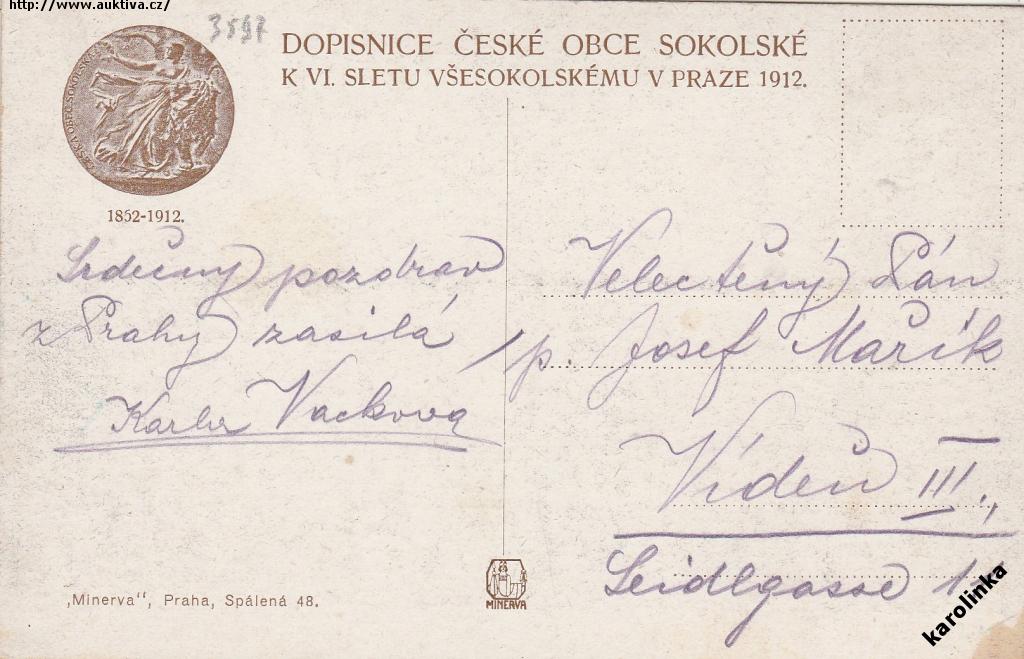 http://www.auktiva.cz/
3597
DOPISNICE ČESKÉ OBCE SOKOLSKÉ
K VI. SLETU VŠESOKOLSKÉMU V PRAZE 1912.
ČESKÁ OBEC SOKOLSKÁ
1862-1912.
Srdečný pozdrav
z Prahy zasílá
Karla Vacková
Velectěný Pán
p. Josef Mařík
Vídeň III.,
Seidlgasse
„Minerva", Praha, Spálená 48.
MINERVA
karolinka